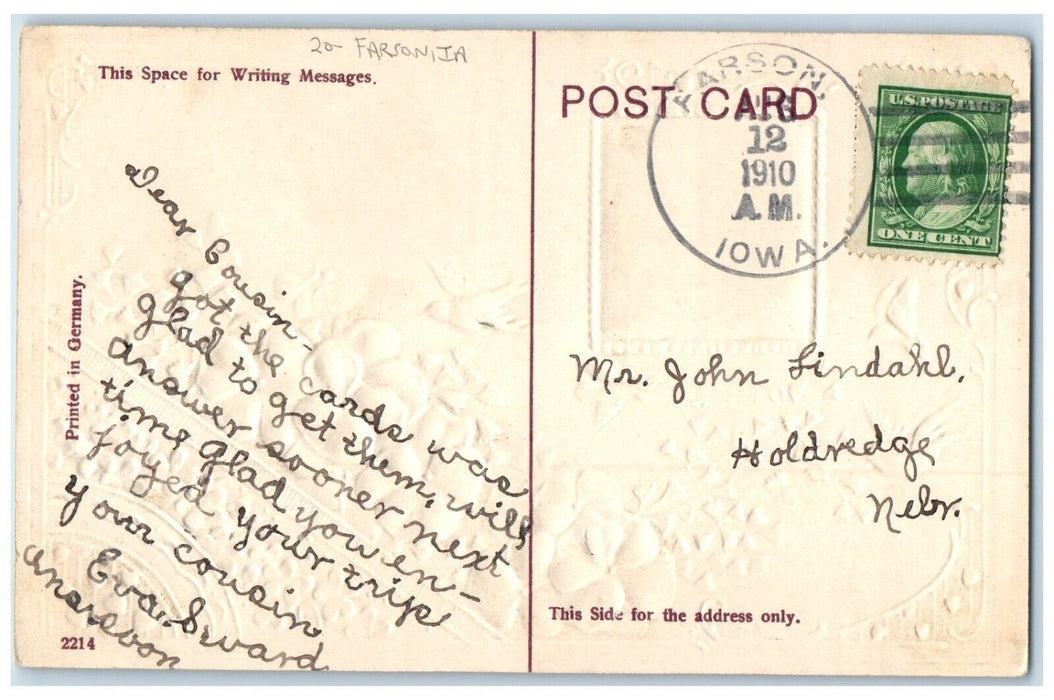 20- FARSON, IA
This Space for Writing Messages.
Dear Cousin-
got the cards was
glad to get them, will
answer sooner next
time glad you en-
joyed your trip
your cousin
Eva. Seward
ans soon
Printed in Germany.
2214
POST CARD
FARSON,
AUG
12
1910
A.M.
IOWA.
U.S. POSTAGE
ONE CENT
Mr. John Lindahl,
Holdredge
Nebr.
This Side for the address only.